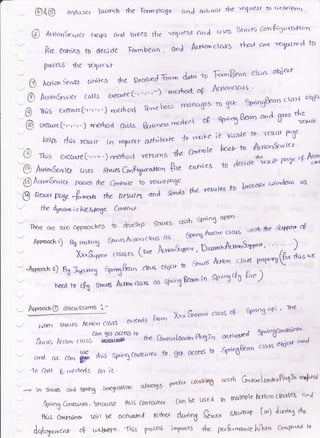 ①&② enduser launch the Formpage and submit the request to webappn,
③ ActionServlet traps and takes the request and uses Struts Configuration
file entries to decide Formbean, and Action class that are required to
process the request
④ Action Servlet writes the Received Form data to FormBean class object
⑤ ActionServlet calls execute(-,-,-,-) method of Action class.
⑥ This execute(-,-,-,-) method some how manages to get SpringBean class object
⑦ execute(-,-,-,-) method calls Business method of Spring Bean and gets the result.
keeps this result in request attribute to make it visible to result page
⑧ This execute(-,-,-,-) method returns the Controle back to ActionServlet.
⑨ ActionServlet uses Struts Configuration file entries to decide result page of Action class
⑩ ActionServlet passes the Controle to resultpage
⑪ Result page formats the Results and sends the results to browser window as
the dynamic webpage Content
There are two approaches to develop Struts with Spring appn.
Approach 1) By making Struts Action class as Spring Aware class with the support of
XxxSupport classes (like ActionSupport, DispatchActionSupport, ....)
Approach 2) By Injecting SpringBean class object to Struts Action class property (for this we
need to cfg Struts Action class as Spring Bean in Spring cfg file)
Approach① discussions :-
When Struts Action class extends from XxxSupport class of Spring api. The
Struts Action class can get access to the ContextLoaderPlugIn activated SpringContainer.
and we can use this Spring Container to get access to SpringBean class object and
to call B.methods on it.
→ In Struts and Spring Integration always prefer working with ContextLoaderPlugIn
Spring Container. because this container can be used in multiple Action classes and
this container will be activated either during Server startup (or) during the
deployement of webappn. This process improves the performance When Compared to